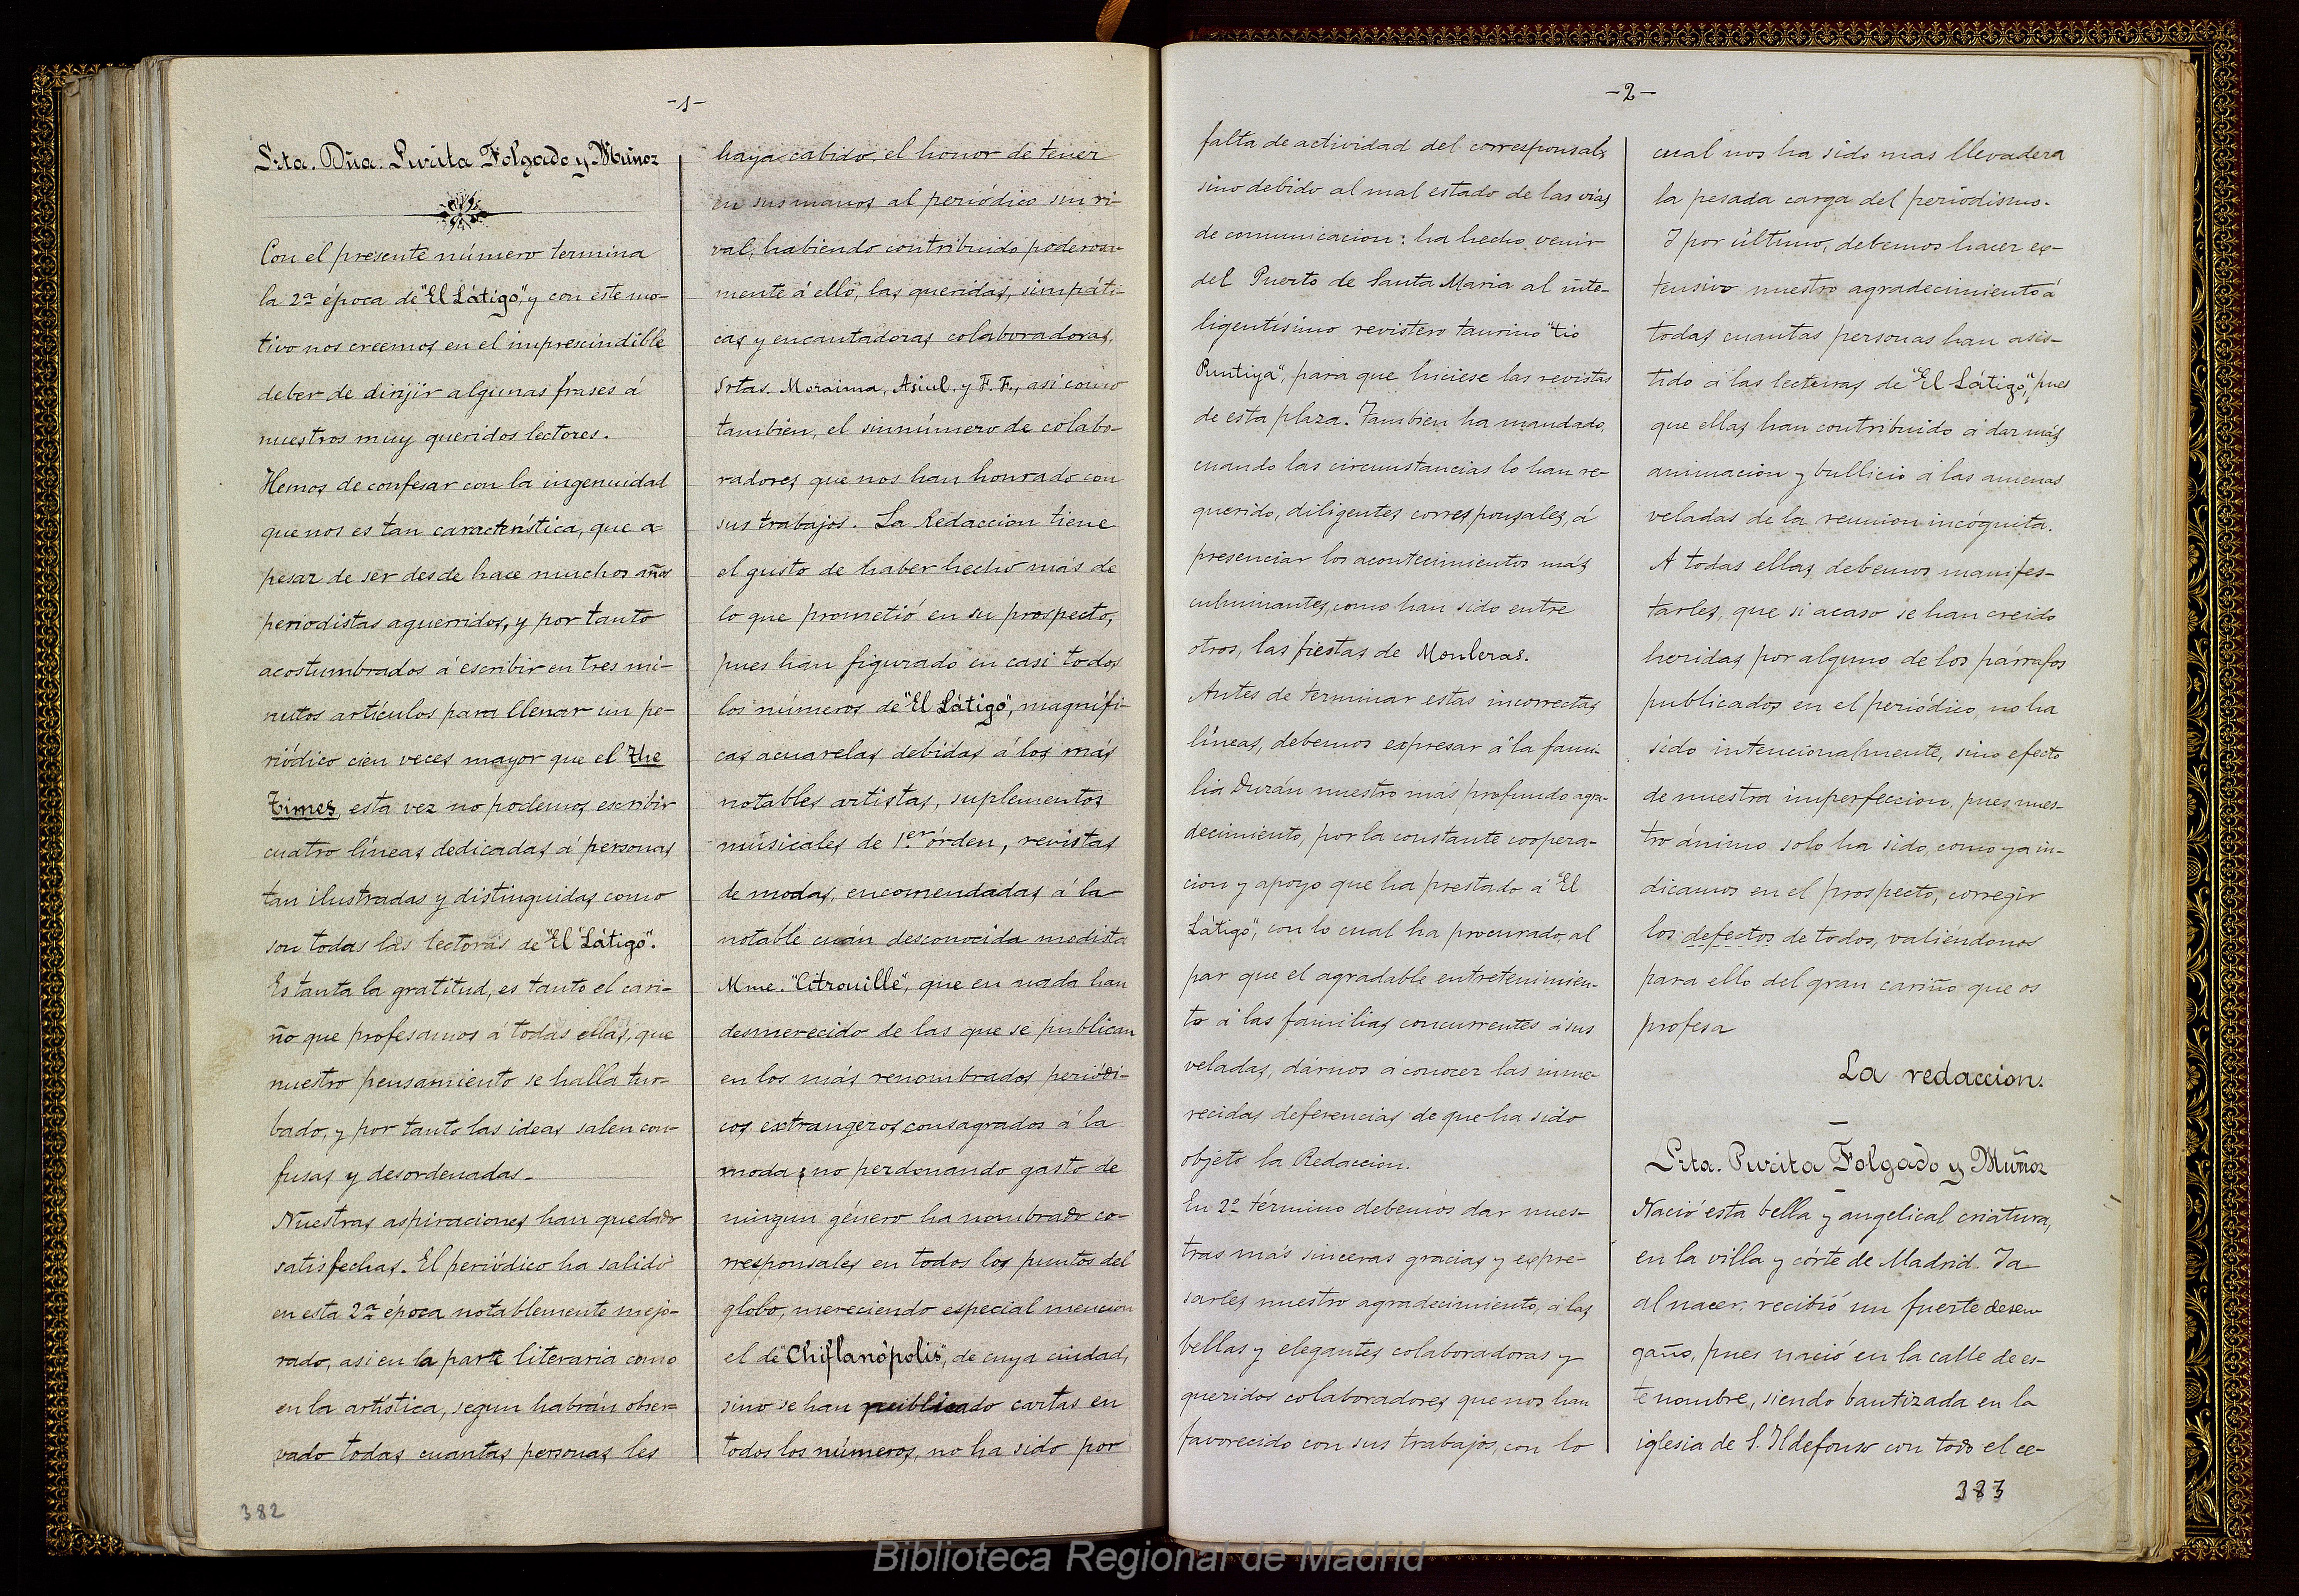 -1-
Srta. Dña. Purita Folgado y Muñoz
Con el presente número termina
la 2ª época de "El Látigo", y con este mo-
tivo nos creemos en el imprescindible
deber de dirijir algunas frases á
nuestros muy queridos lectores.
Hemos de confesar con la ingenuidad
que nos es tan característica, que a-
pesar de ser desde hace muchos años
periodistas aguerridos, y por tanto
acostumbrados á escribir en tres mi-
nutos artículos para llenar un pe-
riódico cien veces mayor que el The
Times, esta vez no podemos escribir
cuatro líneas dedicadas á personas
tan ilustradas y distinguidas como
son todas las lectoras de "El Látigo".
Es tanta la gratitud, es tanto el cari-
ño que profesamos á todas ellas, que
nuestro pensamiento se halla tur-
bado, y por tanto las ideas salen con-
fusas y desordenadas.
Nuestras aspiraciones han quedado
satisfechas. El periódico ha salido
en esta 2ª época notablemente mejo-
rado, asi en la parte literaria como
en la artística, segun habrán obser-
vado todas cuantas personas les
haya cabido, el honor de tener
en sus manos al periódico sin ri-
val, habiendo contribuido poderosa-
mente á ello, las queridas, simpáti-
cas y encantadoras colaboradoras,
Srtas. Moraima, Asiul, y F. F., asi como
también, el sinnúmero de colabo-
radores que nos han honrado con
sus trabajos. La Redaccion tiene
el gusto de haber hecho más de
lo que prometió en su prospecto,
pues han figurado en casi todos
los números de "El Látigo", magnífi-
cas acuarelas debidas á los más
notables artistas, suplementos
músicales de 1.er órden, revistas
de modas, encomendadas á la
notable cuán desconocida modista
Mme. "Citrouille", que en nada han
desmerecido de las que se publican
en los más renombrados periódi-
cos extrangeros consagrados á la
moda; no perdonando gasto de
ningun género ha nombrado co-
rresponsales en todos los puntos del
globo, mereciendo especial mencion
el de "Chiflanópolis", de cuya ciudad,
sino se han publicado cartas en
todos los números, no ha sido por
382
-2-
falta de actividad del corresponsal,
sino debido al mal estado de las vías
de comunicacion: ha hecho venir
del Puerto de Santa Maria al inte-
ligentísimo revistero taurino "tio
Puntiya", para que hiciese las revistas
de esta plaza. Tambien ha mandado,
cuando las circunstancias lo han re-
querido, diligentes corresponsales, á
presenciar los acontecimientos más
culminantes, como han sido entre
otros, las fiestas de Monleras.
Antes de terminar estas incorrectas
líneas, debemos expresar á la fami-
lia Durán nuestro más profundo agra-
decimiento, por la constante coopera-
cion y apoyo que ha prestado á "El
Látigo", con lo cual ha procurado, al
par que el agradable entretenimien-
to á las familias concurrentes á sus
veladas, dárnos á conocer las inme-
recidas deferencias de que ha sido
objeto la Redaccion.
En 2º término debemos dar nues-
tras más sinceras gracias y expre-
sarles nuestro agradecimiento, á las
bellas y elegantes colaboradoras y
queridos colaboradores que nos han
favorecido con sus trabajos, con lo
cual nos ha sido mas llevadera
la pesada carga del periodismo.
I por último, debemos hacer ex-
tensivo nuestro agradecimiento á
todas cuantas personas han asis-
tido á las lecturas de "El Látigo", pues
que ellas han contribuido á dar más
animacion y bullicio á las amenas
veladas de la reunion incógnita.
A todas ellas debemos manifes-
tarles, que si acaso se han creido
heridas por alguno de los párrafos
publicados en el periódico, no ha
sido intencionalmente, sino efecto
de nuestra imperfeccion, pues nues-
tro ánimo solo ha sido, como ya in-
dicamos en el prospecto, corregir
los defectos de todos, valiéndonos
para ello del gran cariño que os
profesa
La redaccion.
Srta. Purita Folgado y Muñoz
Nació esta bella y angelical criatura,
en la villa y córte de Madrid. Ya
al nacer, recibió un fuerte desen-
gaño, pues nació en la calle de es-
te nombre, siendo bautizada en la
iglesia de S. Ildefonso con todo el ce-
383
Biblioteca Regional de Madrid